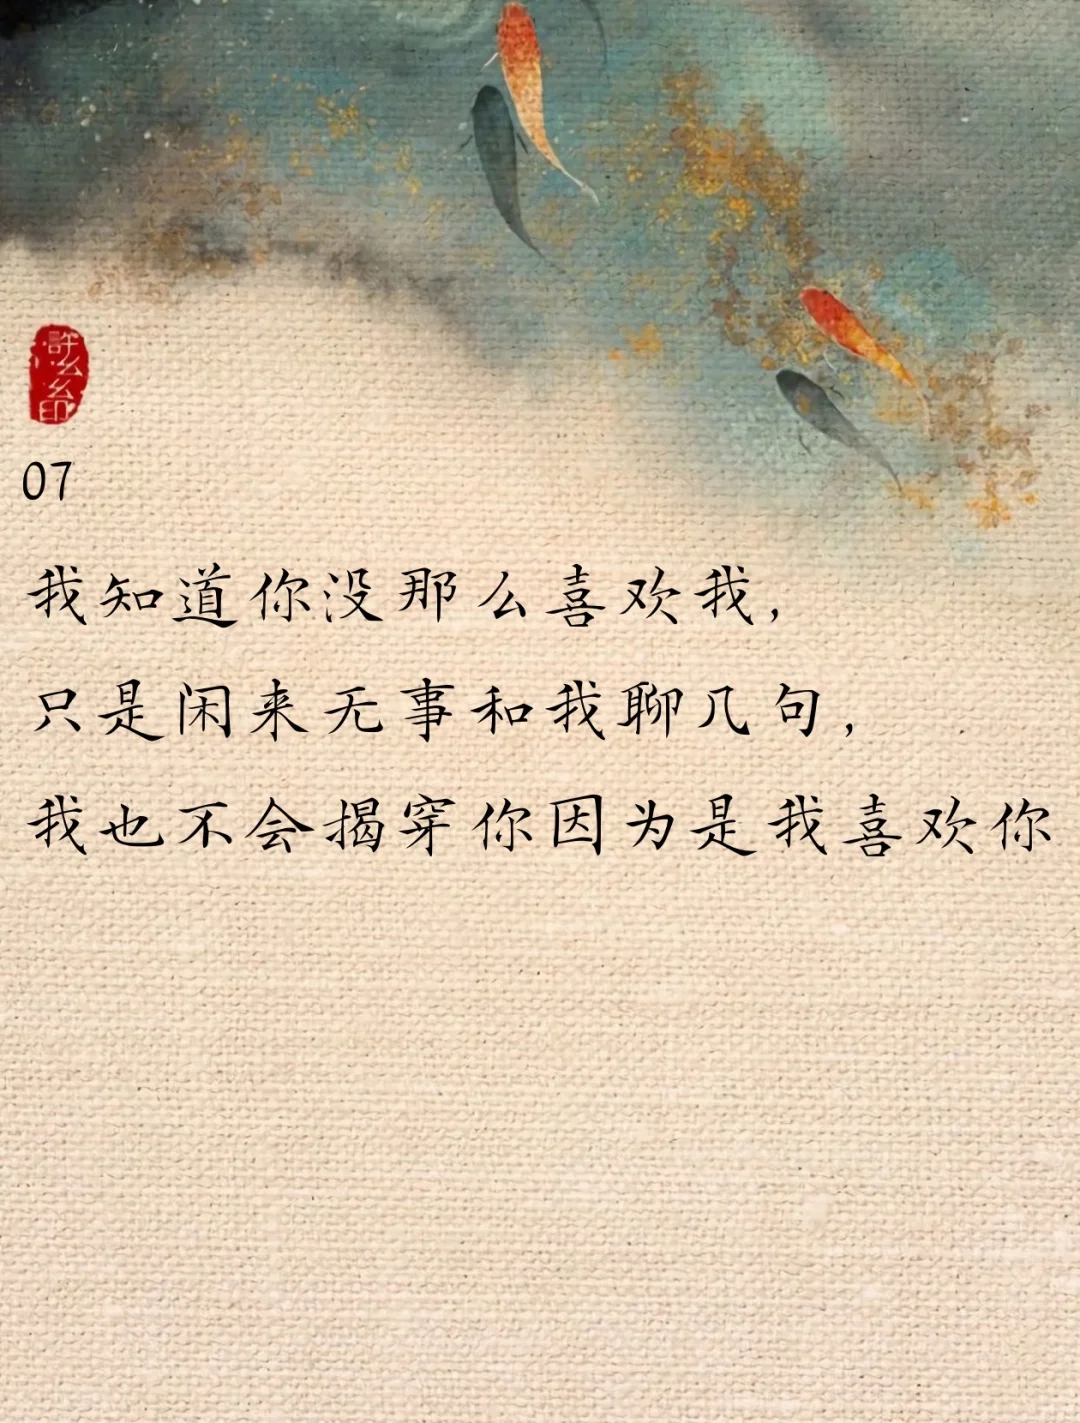 許么么印
07
我知道你没那么喜欢我,
只是闲来无事和我聊几句,
我也不会揭穿你因为是我喜欢你